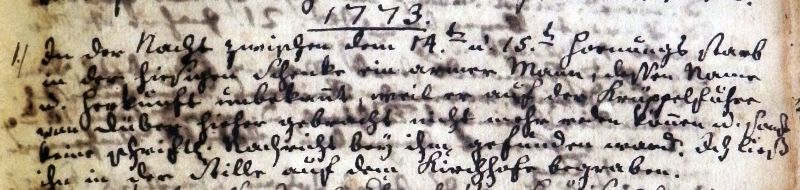 1773.
1.) In der Nacht zwischen dem 14.t u. 15.t Hornungs starb
in der hiesigen Schenke ein armer Mann, dessen Name
u. Herkunft unbekannt, weil er auf der Krüppelfuhre
von Düben hieher gebracht nicht mehr reden können u. sonst
keine schriftl. Nachricht bey ihm gefunden ward. Ich ließ
ihn in der Stille auf dem Kirchhofe begraben.